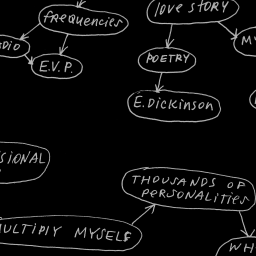 frequencies
love story
DIO
E.V.P.
POETRY
M
E.Dickinson
SIONAL
THOUSANDS OF
PERSONALITIES
MULTIPLY MYSELF
WH